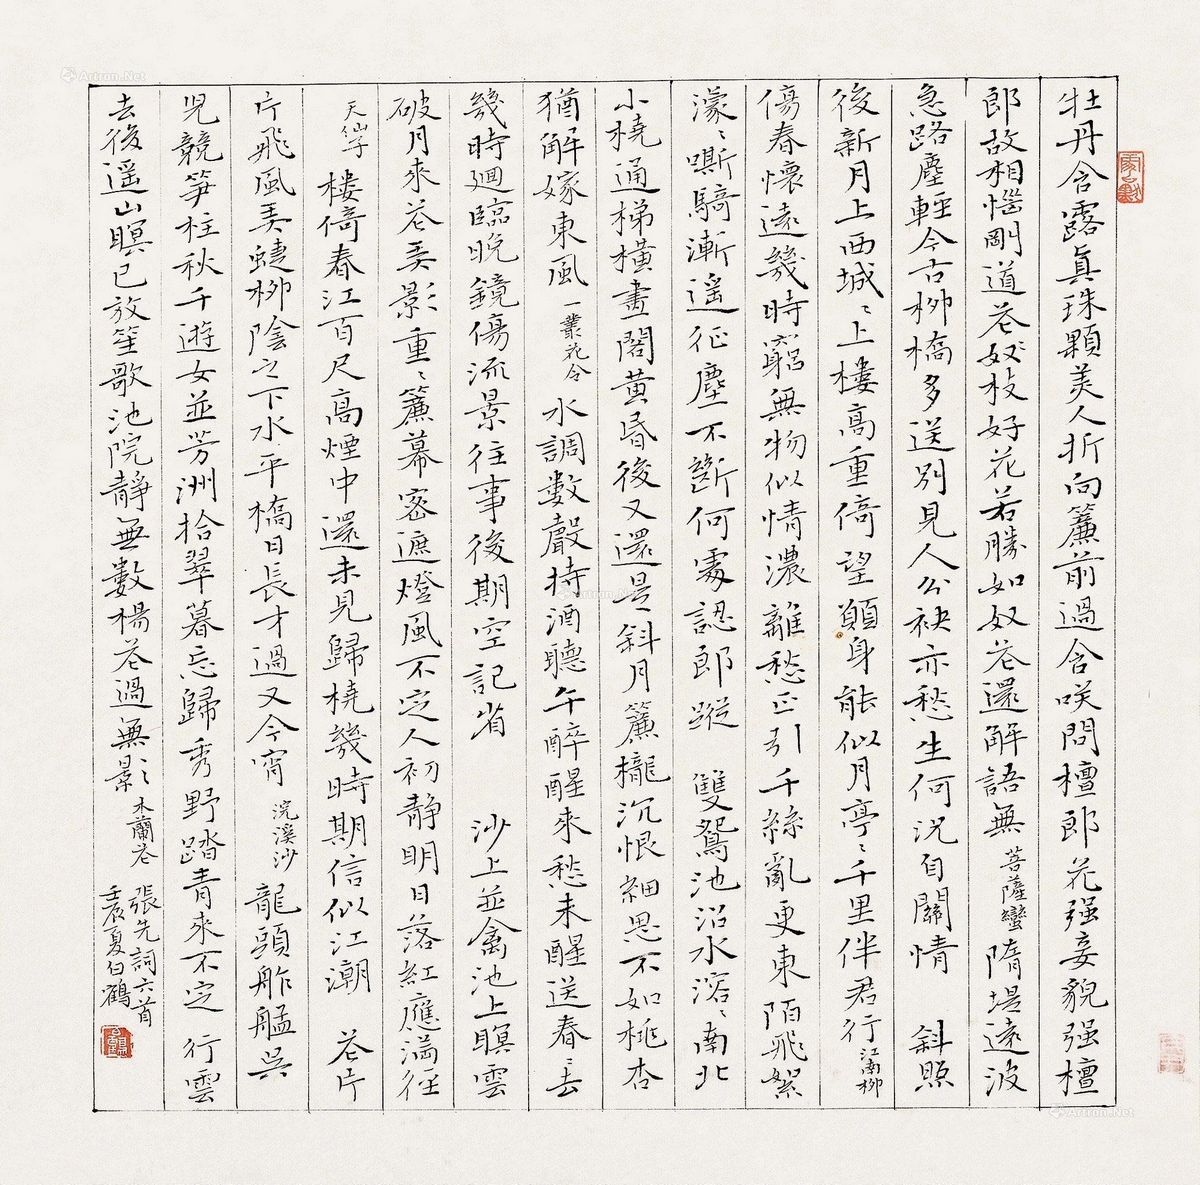 牡丹含露眞珠顆美人折向簾前過含咲問檀郎花强妾貌强檀
郎故相惱剛道花奴枝好花若勝如奴花還解語無 菩薩蠻 隋堤遠波
急路塵輕今古栁橋多送別見人分袂亦愁生何况自關情 斜照
後新月上西城〻上樓高重倚望願身能似月亭〻千里伴君行 江南栁
傷春懷遠幾時窮無物似情濃離愁正引千絲亂更東陌飛絮
濛〻嘶騎漸遥征塵不斷何處認郎蹤 雙鴛池沼水溶〻南北
小橈通梯橫畫閣黄昏後又還是斜月簾櫳沉恨細思不如桃杏
猶解嫁東風 一叢花令 水調數聲持酒聽午醉醒來愁未醒送春〻去
幾時迴臨晚鏡傷流景往事後期空記省 沙上並禽池上瞑雲
破月來花弄影重〻簾幕密遮燈風不定人初静明日落紅應滿徑
天仙子 樓倚春江百尺高煙中還未見歸橈幾時期信似江潮 花片
片飛風弄蝶栁陰之下水平橋日長才過又今宵 浣溪沙 龍頭舴艋吳
児競笋柱秋千遊女並芳洲拾翠暮忘歸秀野踏青來不定 行雲
去後遥山瞑已放笙歌池院静無數楊花過無影 木蘭花 張先詞六首
壬辰夏白鶴
Artron.Net
Artron.Net
Artron.Net